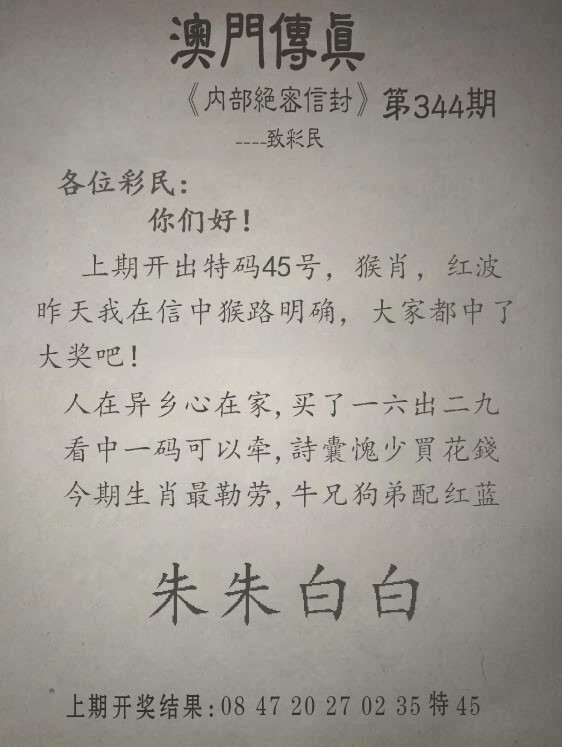 澳門傳真
《内部絕密信封》第344期
----致彩民
各位彩民：
你们好！
上期开出特码45号，猴肖，红波
昨天我在信中猴路明确，大家都中了
大奖吧！
人在异乡心在家,买了一六出二九
看中一码可以牵,詩囊愧少買花錢
今期生肖最勒劳,牛兄狗弟配红蓝
朱朱白白
上期开奖结果:08 47 20 27 02 35 特 45